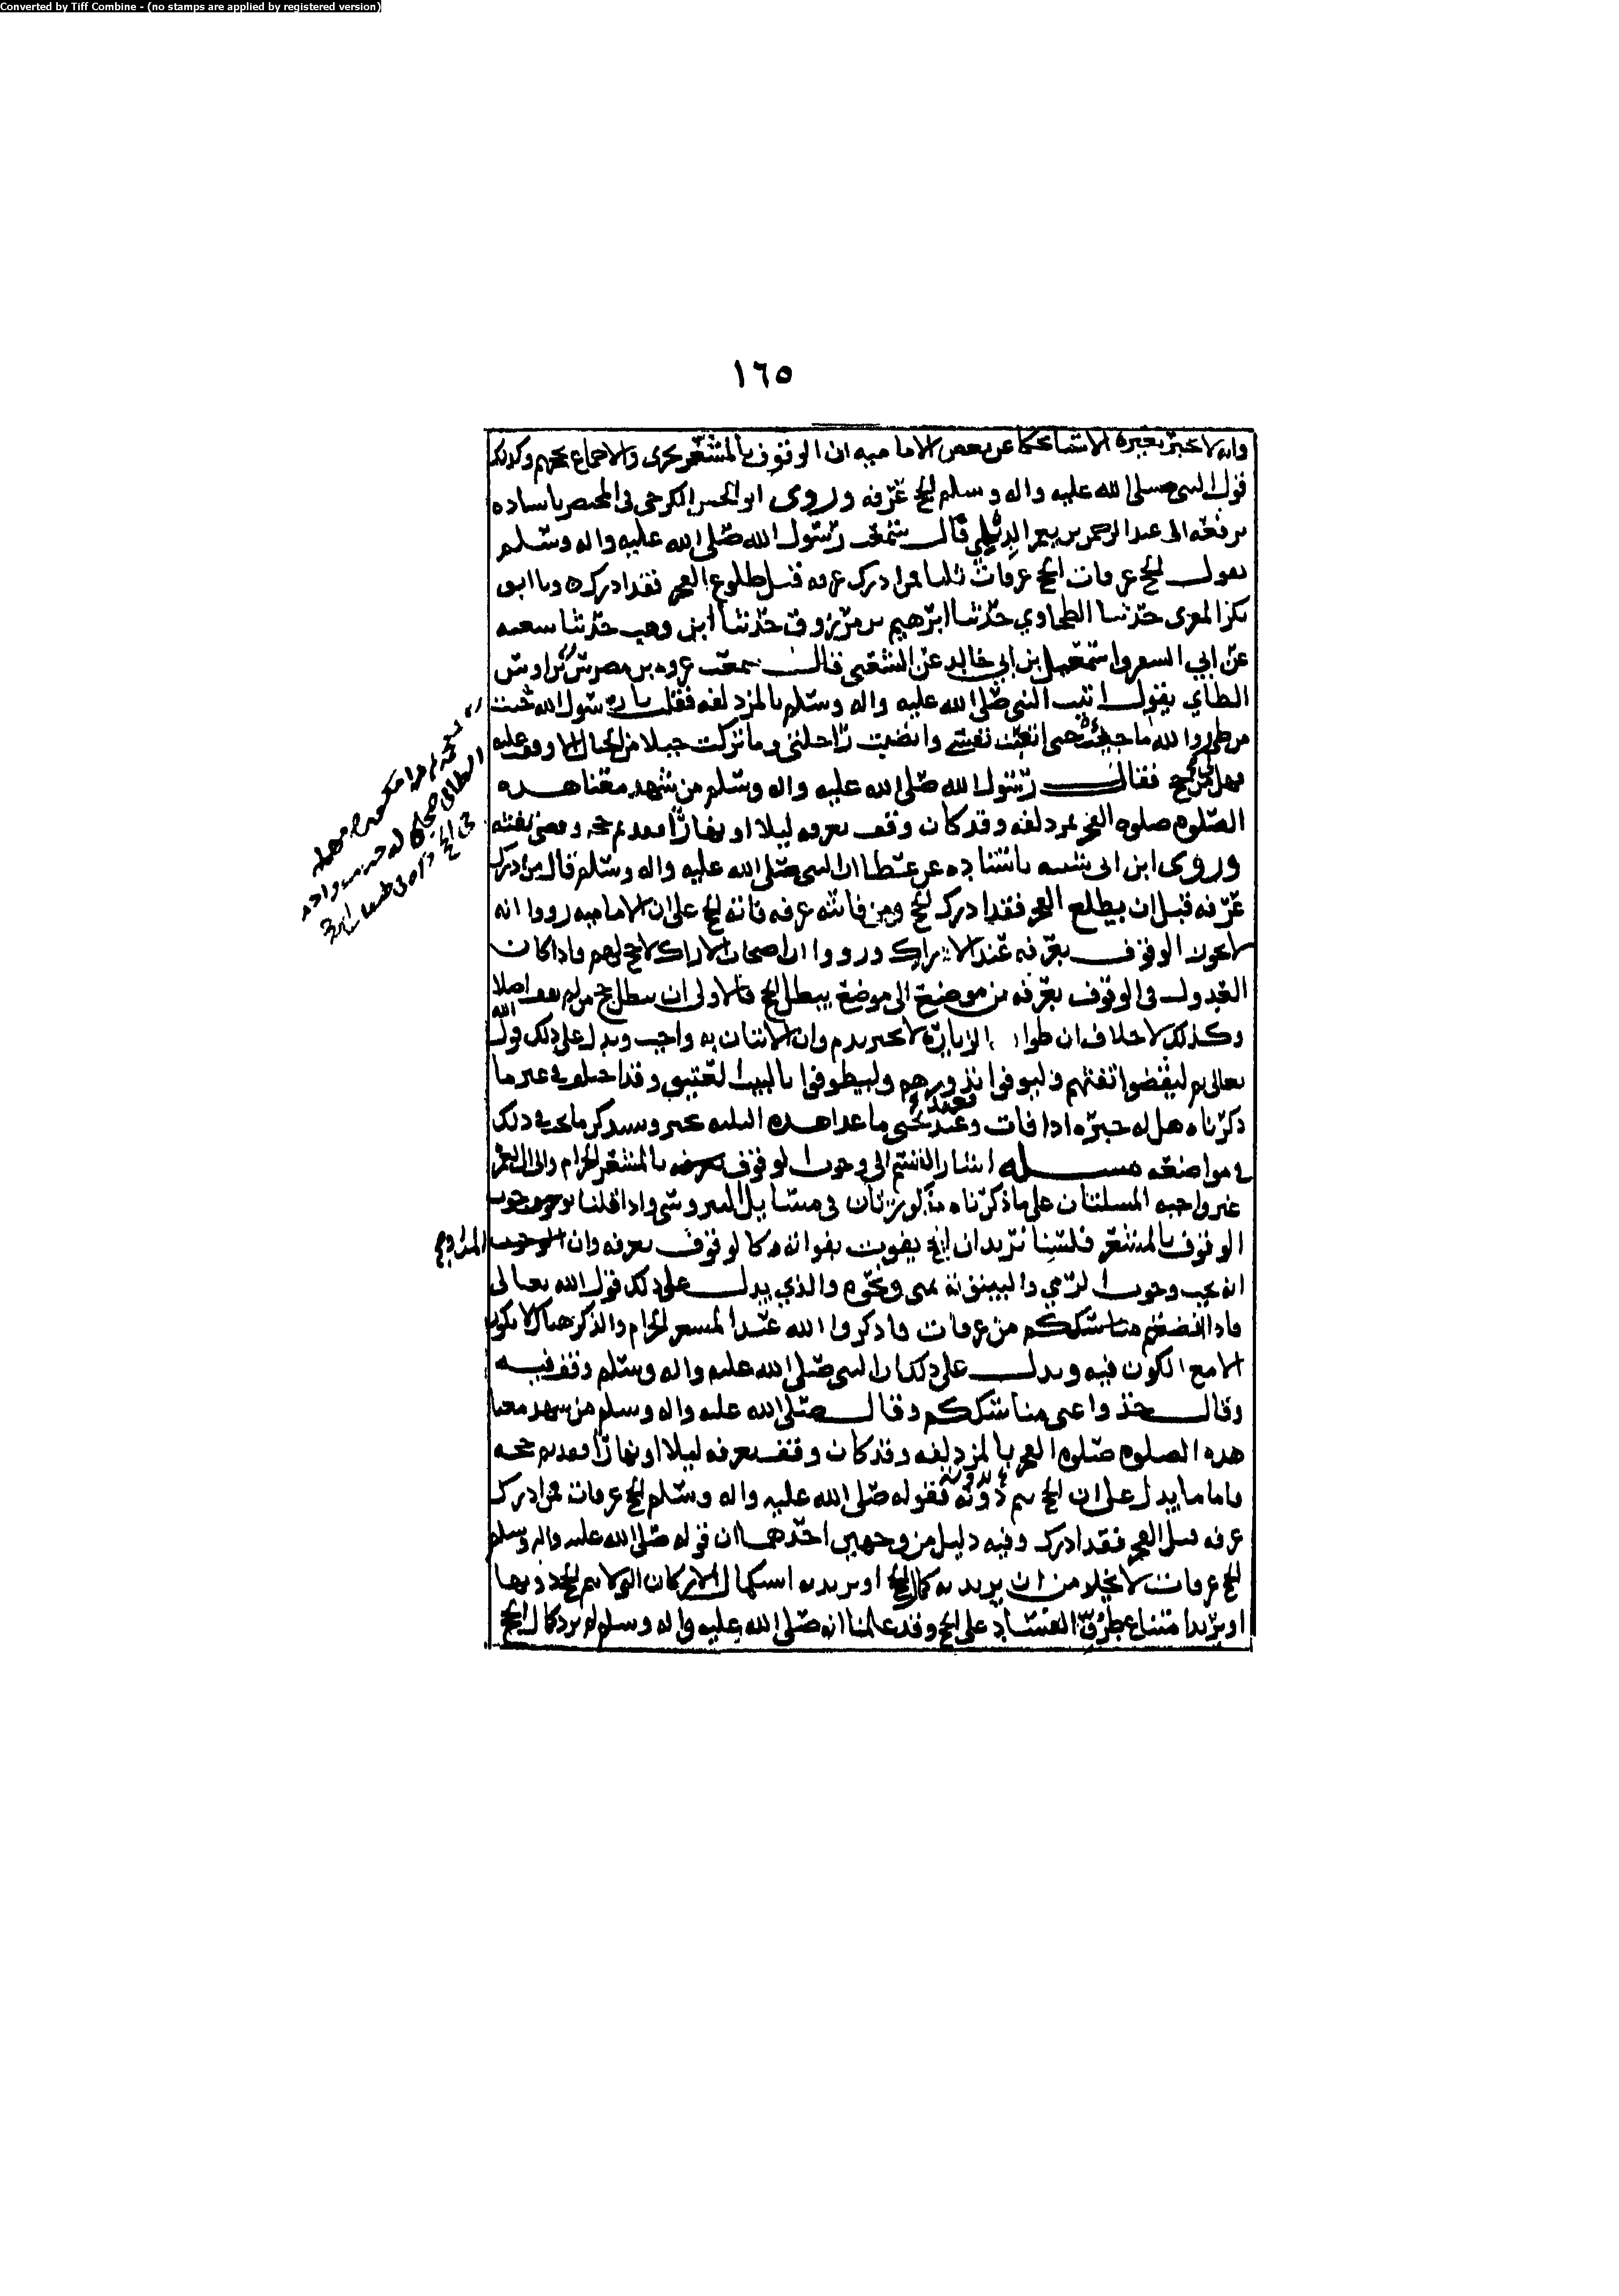 Converted by Tiff Combine - (no stamps are applied by registered version)
١٦٥
وانه لا يجبره بغيره الا شيا يحكا عن بعض الاماميه ان الوقوف بالمشعر يجزي والاجماع يحجهم وكذلك
قول النبي صلى الله عليه واله وسلم الحج عرفه وروى ابو الحسن الكرخي في المختصر باسناده
يرفعه الى عبد الرحمن بن يعمر الديلي قال سمعت رسول الله صلى الله عليه واله وسلم
يقول الحج عرفات الحج عرفات ثلثا فمن ادرك عرفه قبل طلوع الفجر فقد ادرك وبا ابو
بكر المقري حدثنا الطحاوي حدثنا ابرهيم بن مرزوق حدثنا ابن وهب حدثنا سعيه
عن ابي السفر واسمعيل بن ابي خالد عن الشعبي قال سمعت عروه بن مضرس بن اوس
الطاي يقول اتيت النبي صلى الله عليه واله وسلم بالمزدلفه فقلت يا رسول الله جئت
من طي والله ما جئت حتى اتعبت نفسي وانضيت راحلتي وما تركت جبلا من الجبال الا وقفت عليه
فهل لي من حج فقال رسول الله صلى الله عليه واله وسلم من شهد معنا هذه
الصلوه صلوه الفجر بمزدلفه وقد كان وقف بعرفه ليلا او نهارا فقد تم حجه وقضى تفثه
وروى ابن ابي شيبه باسناده عن عطا ان النبي صلى الله عليه واله وسلم قال من ادرك
عرفه قبل ان يطلع الفجر فقد ادرك الحج ومن فاته عرفه فاته الحج على ان الاماميه رووا انه
لا يجوز الوقوف بعرفه عند الاراك ورووا ان اصحاب الاراك لا حج لهم فاذا كان
العدول في الوقوف بعرفه من موضع الى موضع يبطل الحج فالاولى ان يبطل حج من لم يقف اصلا
وكذلك لا خلاف ان طواف الزياره لا يجبر بدم وان الاتيان به واجب ويدل على ذلك قول الله
تعالى ثم ليقضوا تفثهم وليوفوا نذورهم وليطوفوا بالبيت العتيق وقد اختلف في غير ما
ذكرناه هل له جبره اذا فات وعند يحيى ما عدا هذه الثلثه يجبر وسنذكر ما يجي في ذلك
في مواضعه مسله اشار القسم الى وجوب الوقوف بالمشعر الحرام والى ان العمره
غير واجبه المسلتان على ما ذكرناه مذكورتان في مسايل النيروسي واذا قلنا بوجوب
الوقوف بالمشعر فلسنا نريد ان الحج يفوت بفواته كالوقوف بعرفه وان المراد
انه يجب وجوب الرمي والبيتوته بمنى ونحوه والذي يدل على ذلك قول الله تعالى
فاذا افضتم من عرفات فاذكروا الله عند المشعر الحرام والذكر هناك لا يكون
الا مع الكون فيه ويدل على ذلك ان النبي صلى الله عليه واله وسلم وقف فيه
وقال خذوا عني مناسككم وقال صلى الله عليه واله وسلم من شهد معنا
هذه الصلوه صلوه الفجر بالمزدلفه وقد كان وقف بعرفه ليلا او نهارا فقد تم حجه
فاما ما يدل على ان الحج يتم دونه فقوله صلى الله عليه واله وسلم الحج عرفات فمن ادرك
عرفه قبل الفجر فقد ادرك وفيه دليل من وجهين احدهما ان قوله صلى الله عليه واله وسلم
الحج عرفات لا يخلو من ان يريد به كمال الحج او يريد به استكمال الاركان التي لا يتم الحج دونها
او يريد امتناع طرق الفساد على الحج وقد علمنا انه صلى الله عليه واله وسلم لم يرد كمال الحج